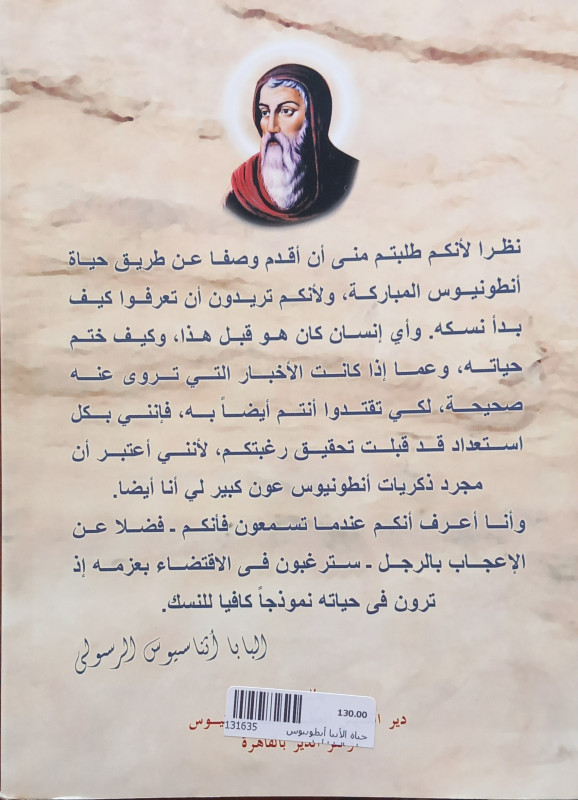 نظرا لأنكم طلبتم منى أن أقدم وصفا عن طريق حياة
أنطونيوس المباركة، ولأنكم تريدون أن تعرفوا كيف
بدأ نسكه. وأي إنسان كان هو قبل هذا، وكيف ختم
حياته، وعما إذا كانت الأخبار التي تروى عنه
صحيحة، لكي تقتدوا أنتم أيضاً به، فإنني بكل
استعداد قد قبلت تحقيق رغبتكم، لأنني أعتبر أن
مجرد ذكريات أنطونيوس عون كبير لي أنا أيضا.
وأنا أعرف أنكم عندما تسمعون فأنكم ـ فضلا عن
الإعجاب بالرجل ـ سترغبون فى الاقتضاء بعزمه إذ
ترون فى حياته نموذجاً كافيا للنسك.
البابا أثناسيوس الرسولى
130.00
131635
حياة الأنبا أنطونيوس
دير
الدير بالقاهرة